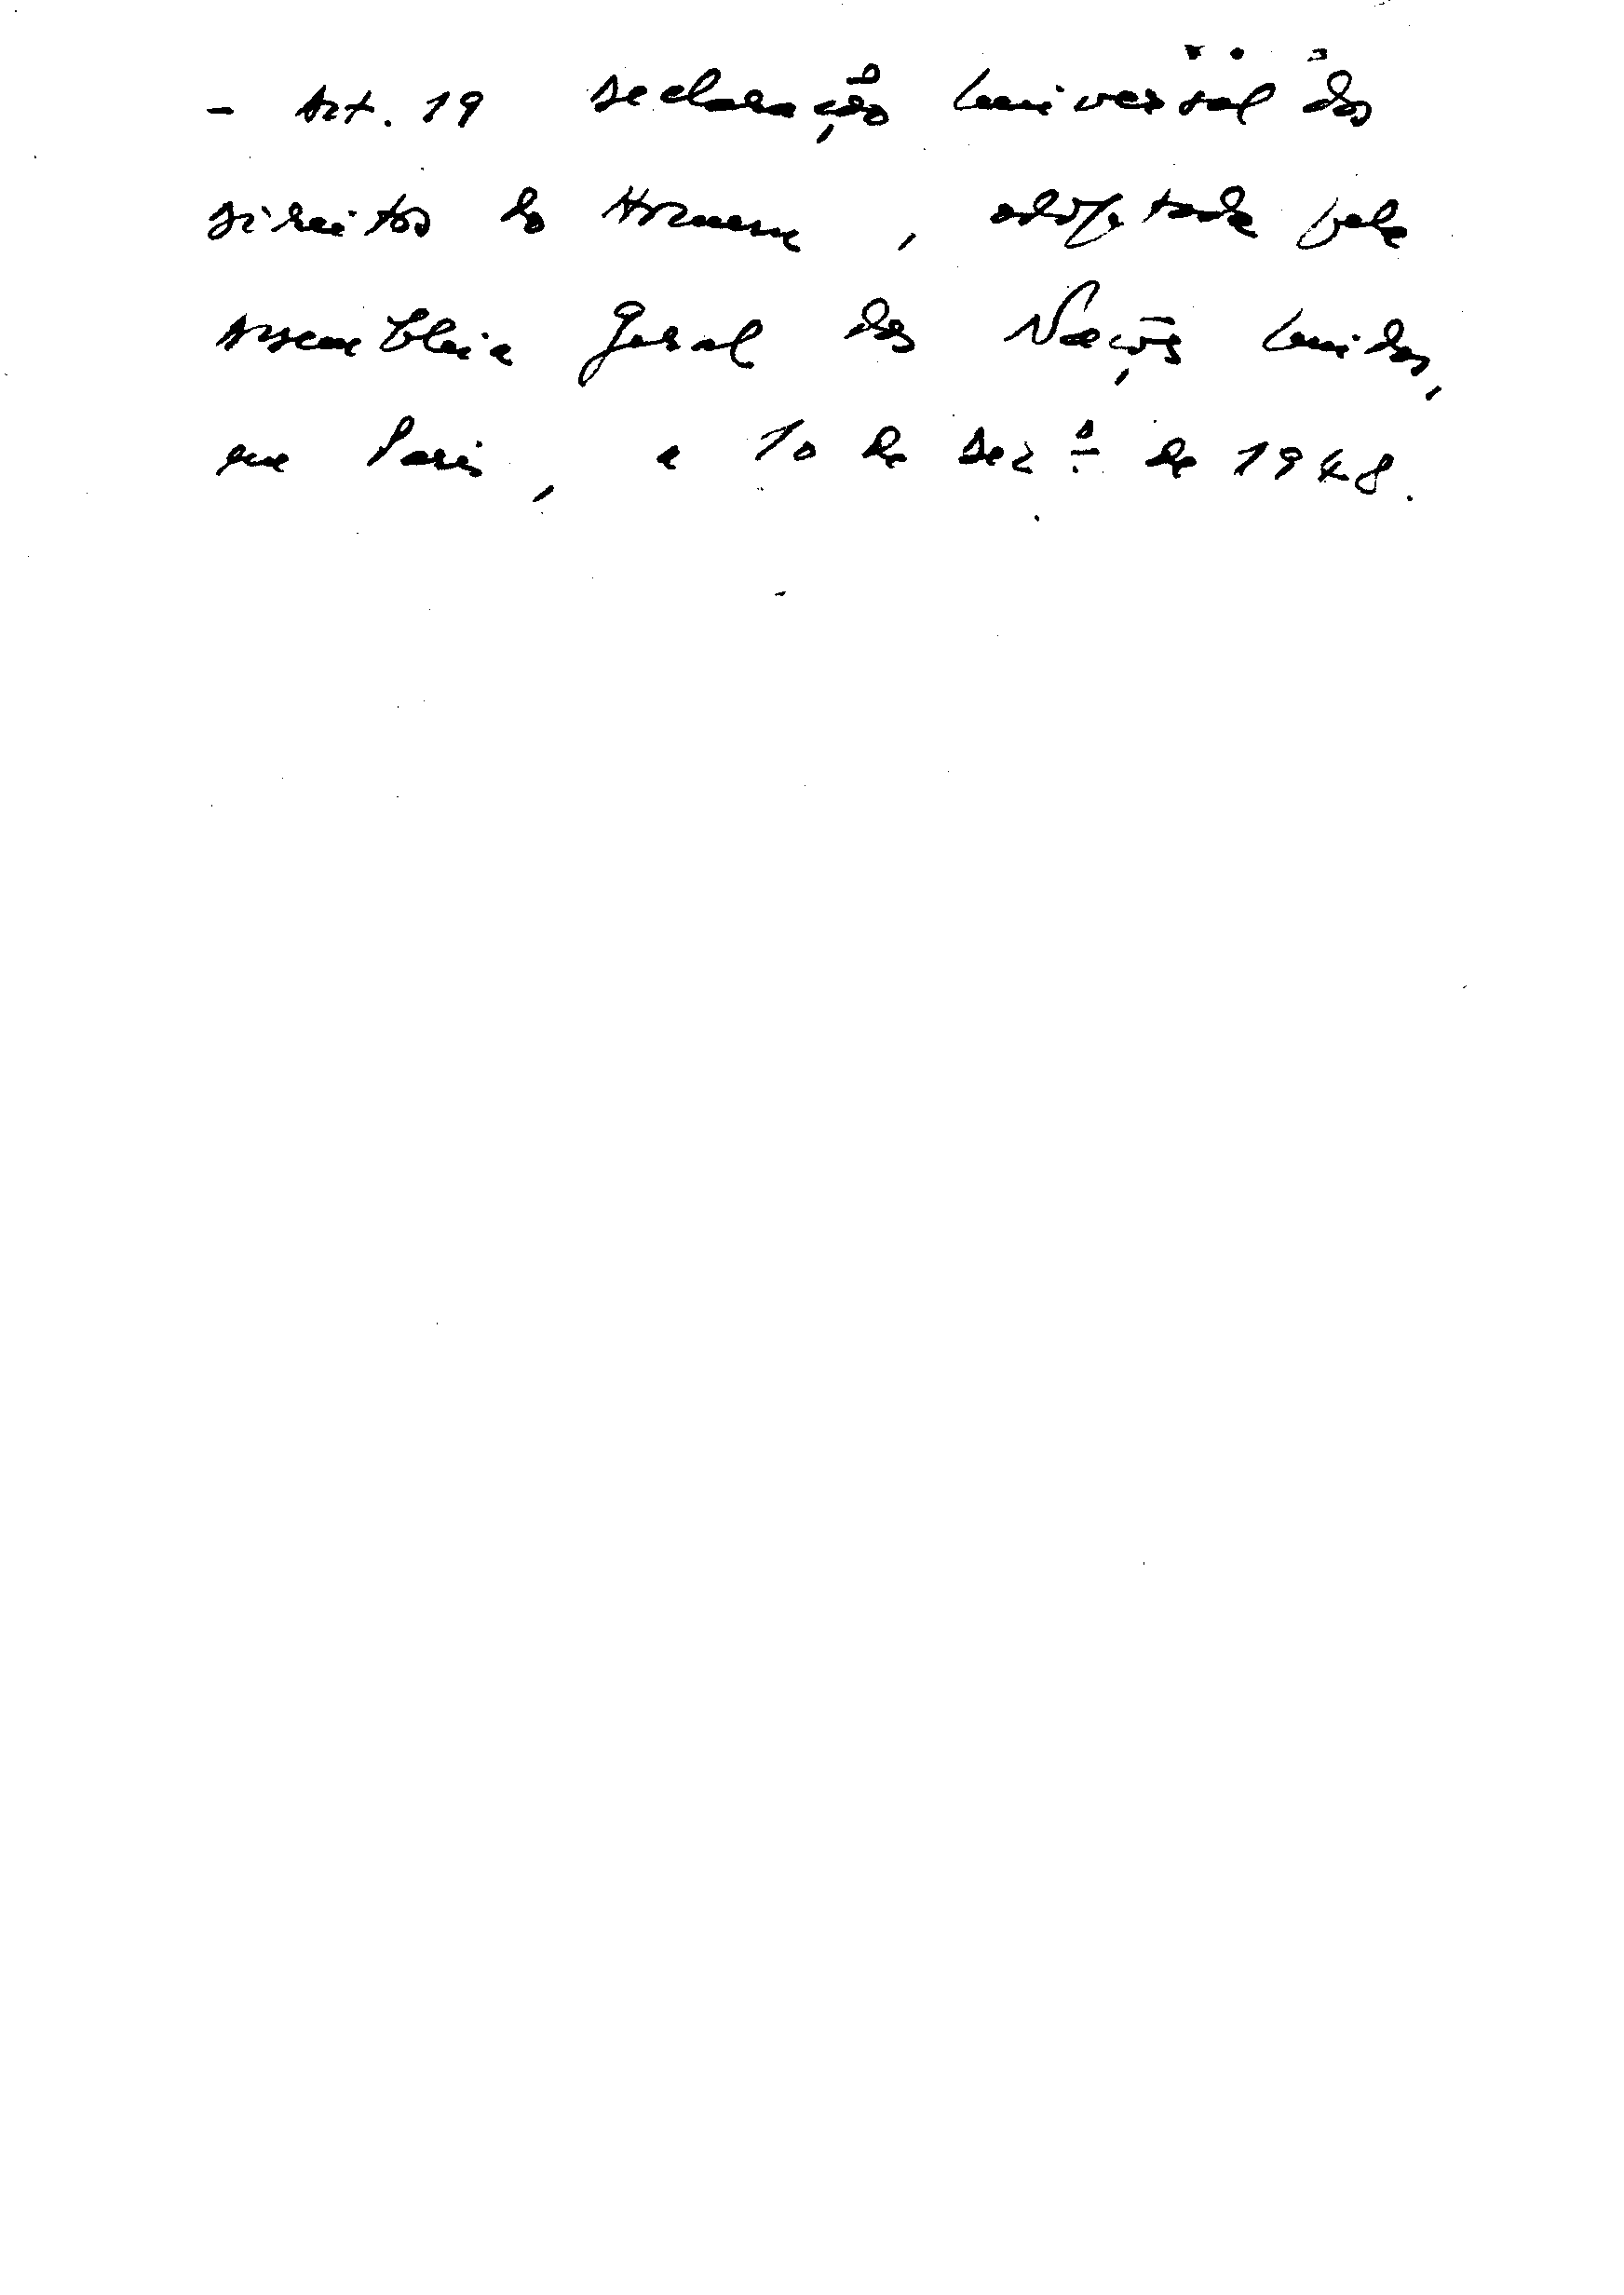 - Art. 19 Declaração Universal dos
Direitos do Homem, adoptada pela
Assembleia Geral das Nações Unidas,
em Paris, a 10 de Dezº de 1948.